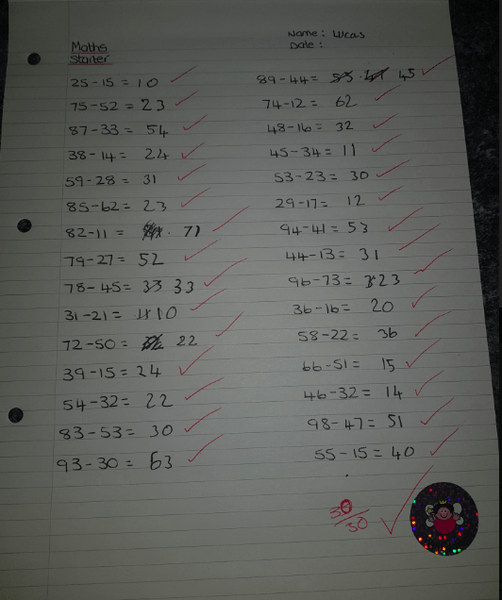 Maths
Starter
Name: Lucas
Date:
25-15 = 10
75-52 = 23
87-33 = 54
38-14 = 24
59-28 = 31
85-62 = 23
82-11 = 71
79-27 = 52
78-45 = 33 33
31-21 = 10
72-50 = 22
39-15 = 24
54-32 = 22
83-53 = 30
93-30 = 63
89-44 = 45
74-12 = 62
48-16 = 32
45-34 = 11
53-23 = 30
29-17 = 12
94-41 = 53
44-13 = 31
96-73 = 23
36-16 = 20
58-22 = 36
66-51 = 15
46-32 = 14
98-47 = 51
55-15 = 40
30/30